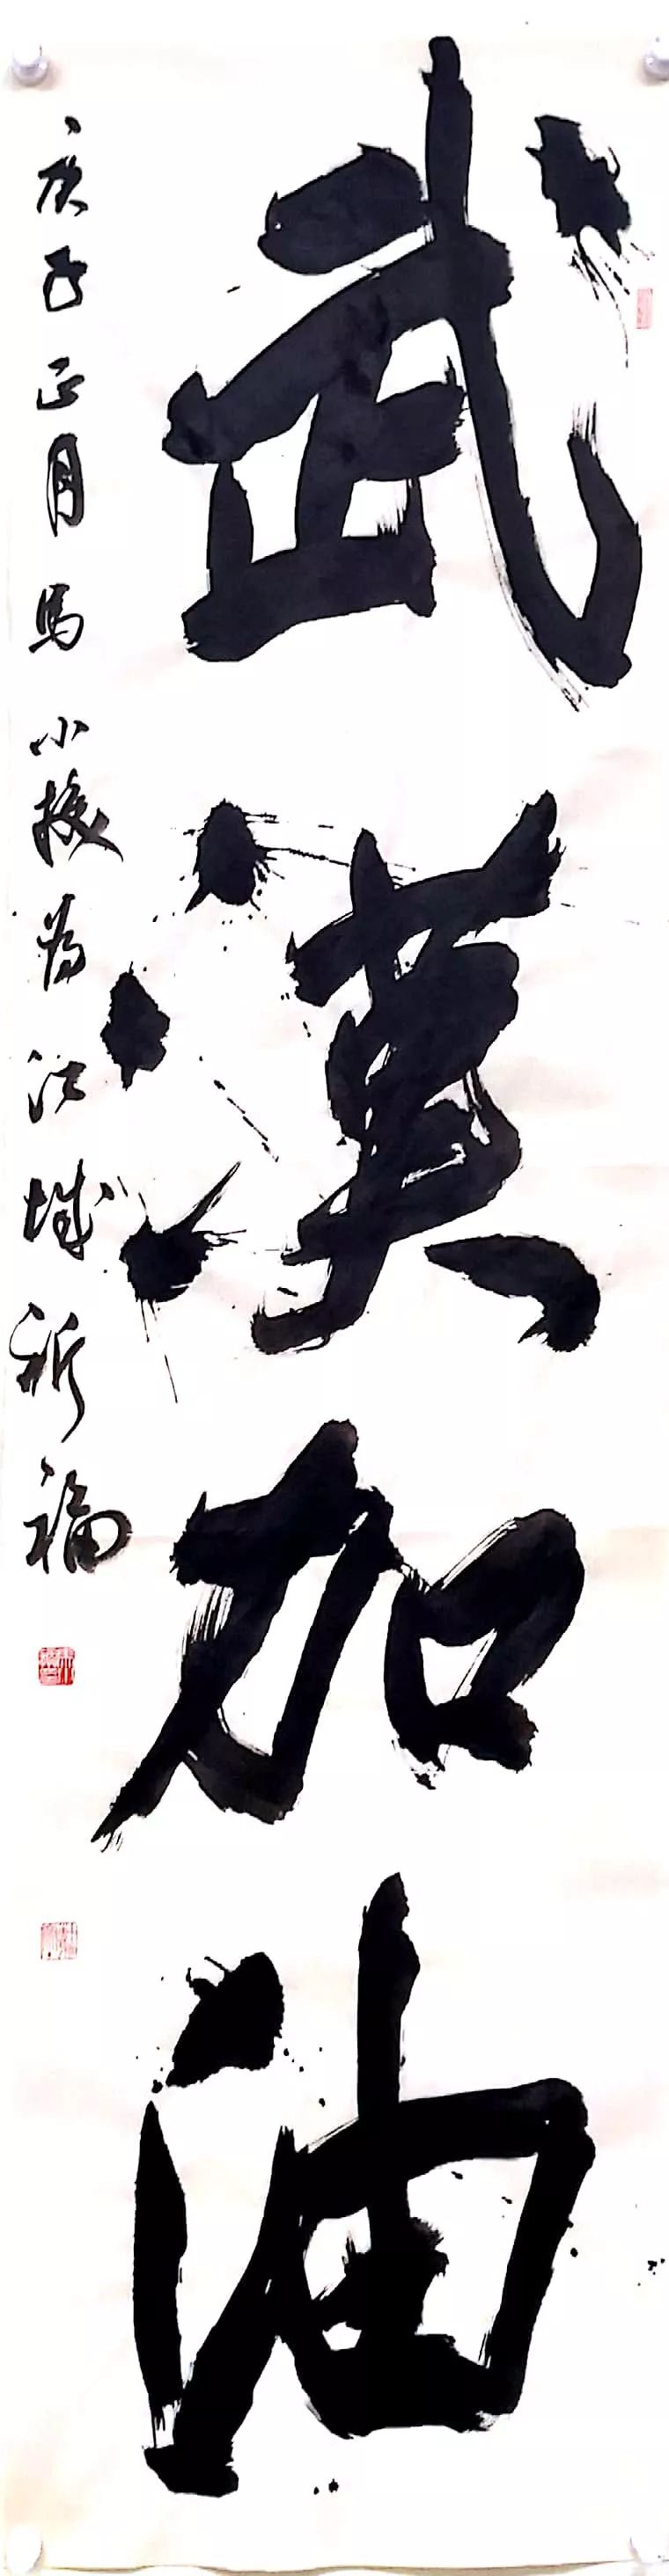 武漢加油
庚子正月馬小援為江城祈福